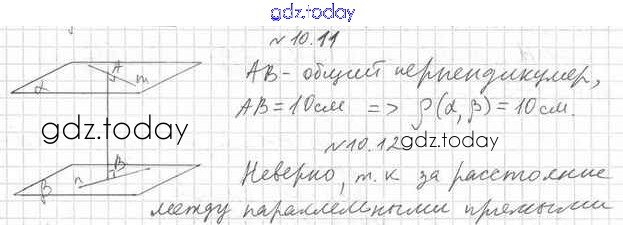 gdz.today
№ 10.11
A
m
α
AB - общий перпендикуляр,
AB = 10 см => ρ(α, β) = 10 см.
gdz.today
№ 10.12
gdz.today
B
n
β
Неверно, т.к за расстояние
между параллельными прямыми